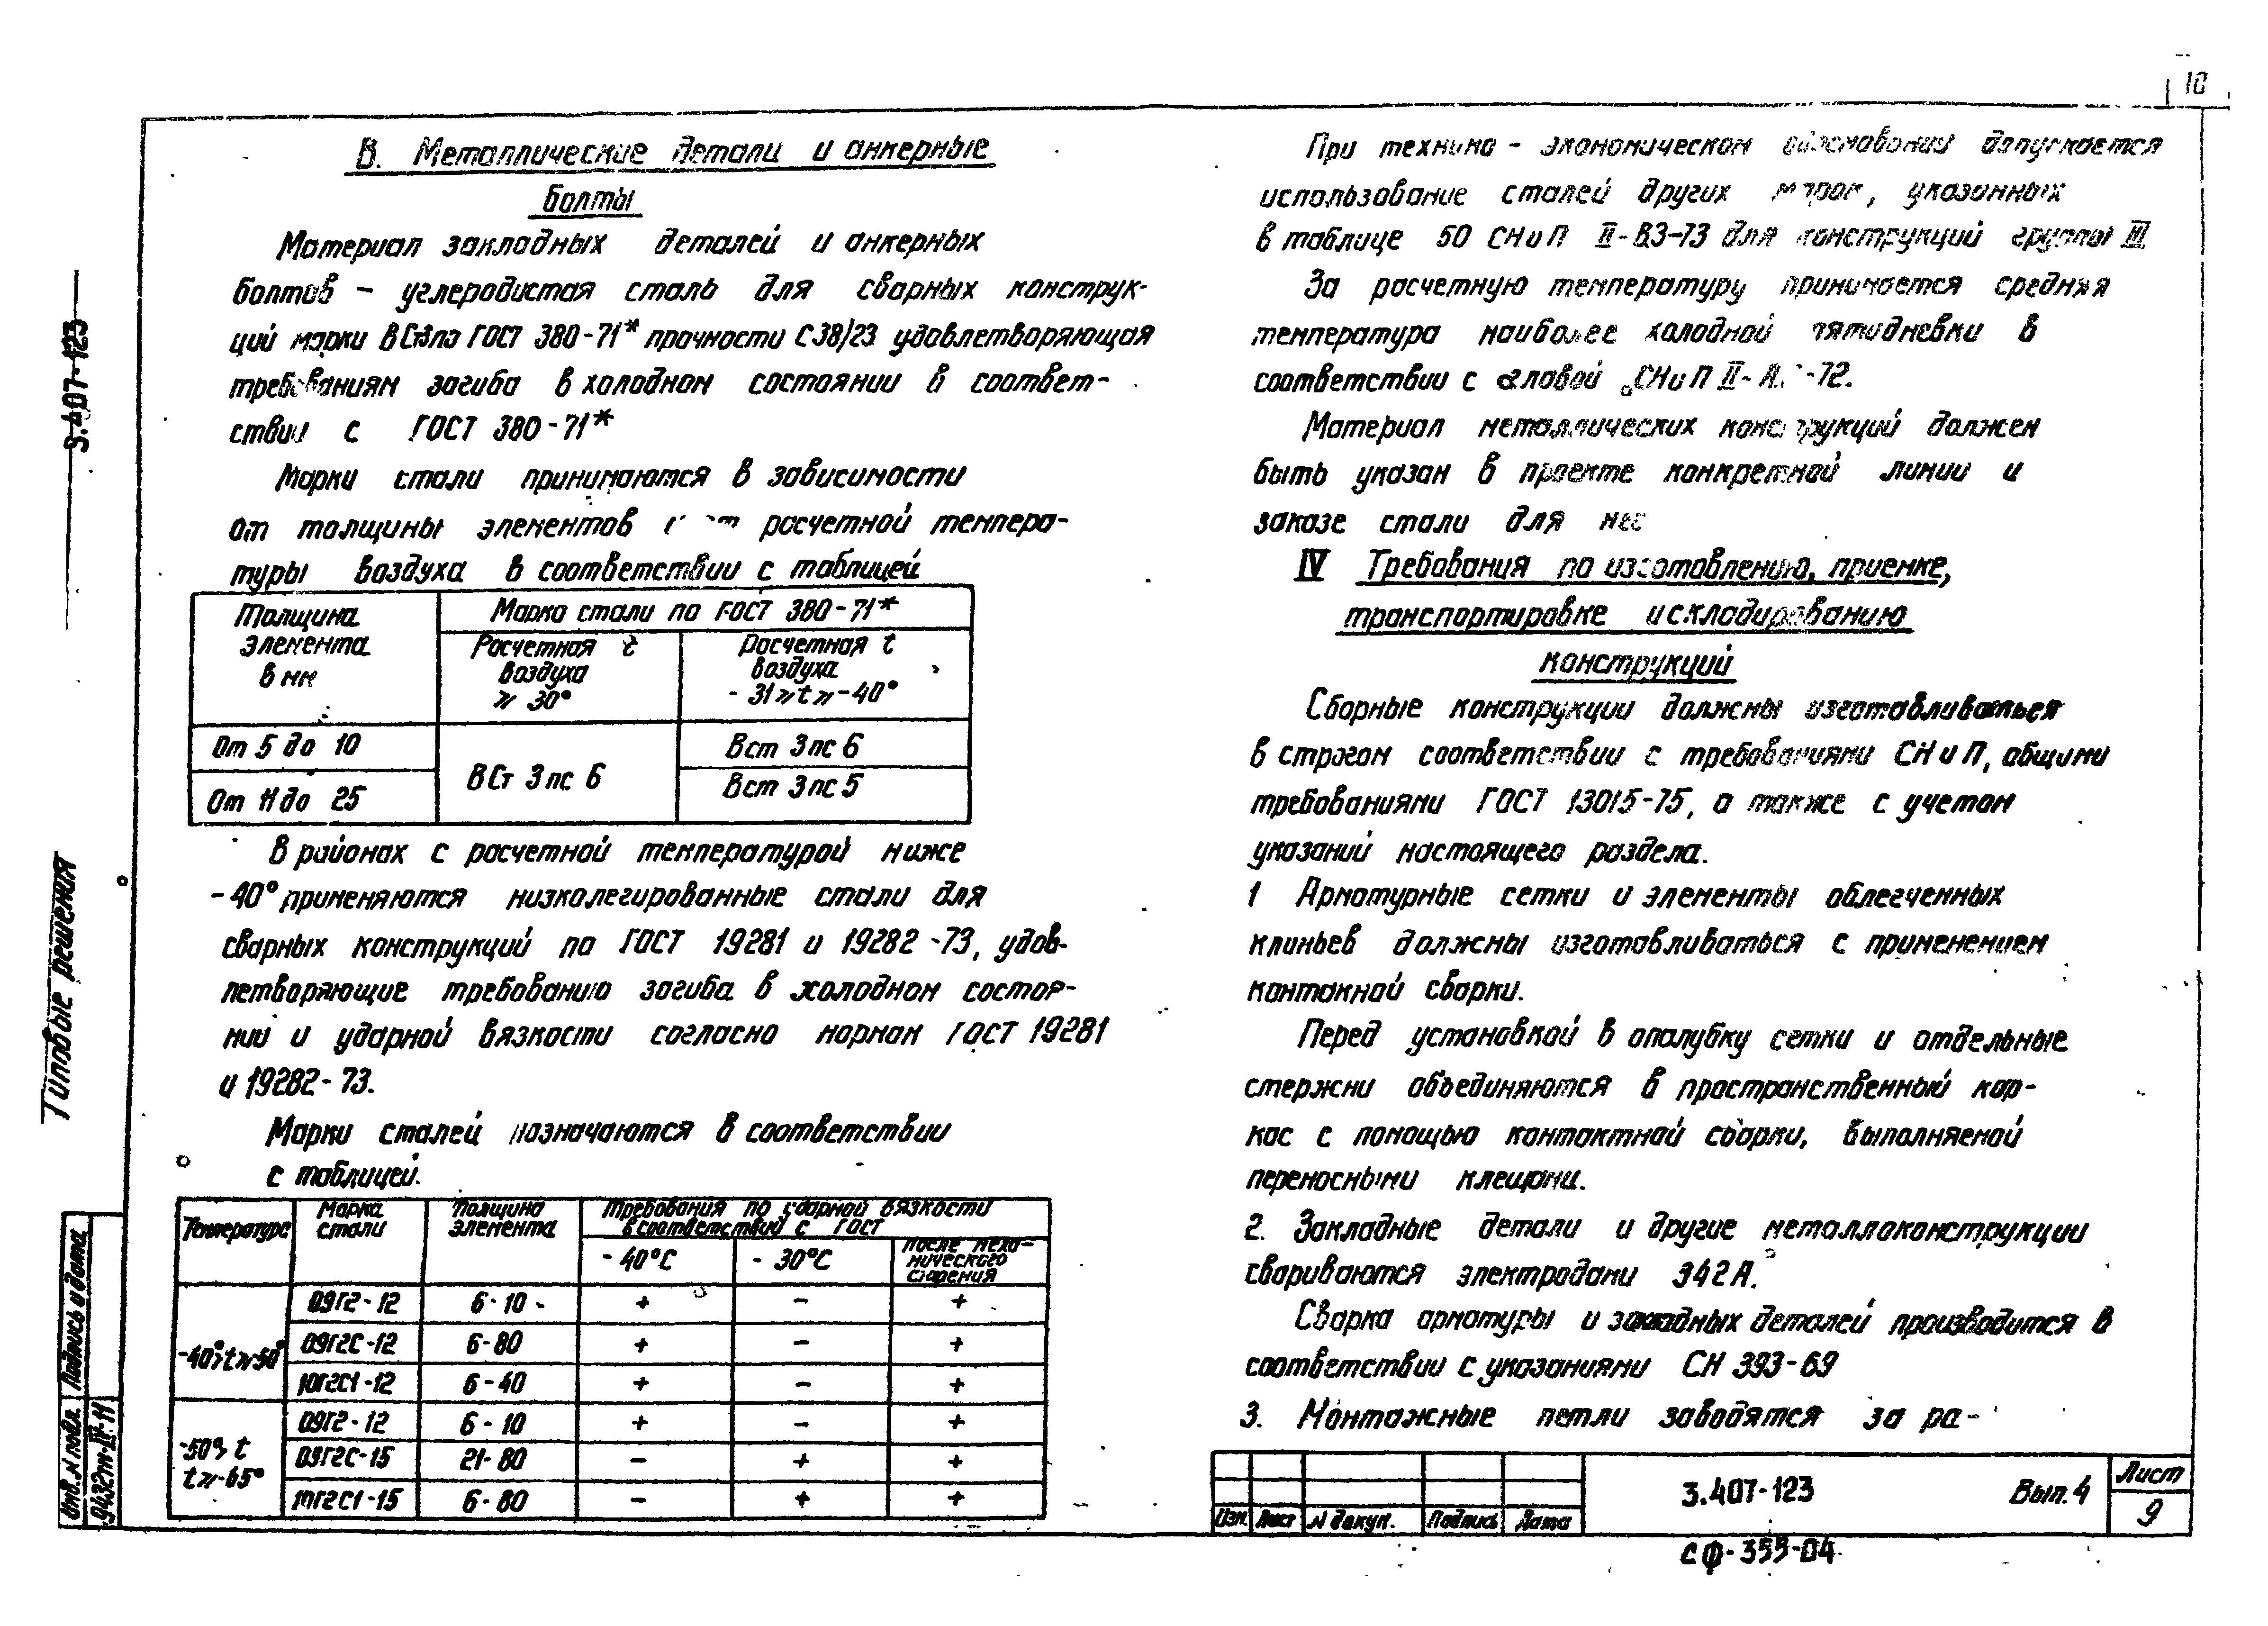 10
В. Металлические детали и анкерные
болты
Материал закладных деталей и анкерных
болтов – углеродистая сталь для сварных конструк-
ций марки ГОСТ 380-71* прочности С38/23 удовлетворяющая
требованиям загиба в холодном состоянии в соответ-
ствии с ГОСТ 380-71*
Марки стали принимаются в зависимости
от толщины элементов от расчетной темпера-
туры воздуха в соответствии с таблицей
Толщина элемента в мм
Марка стали по ГОСТ 380-71*
Расчетная t воздуха ⩾ 30°
Расчетная t воздуха - 31⩾t⩾-40°
От 5 до 10
ВСт 3пс 6
Вст 3пс 6
От 11 до 25
Вст 3пс 5
В районах с расчетной температурой ниже
-40° применяются низколегированные стали для
сварных конструкций по ГОСТ 19281 и 19282-73, удов-
летворяющие требованию загиба в холодном состоя-
нии и ударной вязкости согласно нормам ГОСТ 19281
и 19282-73.
Марки сталей назначаются в соответствии
с таблицей.
Температуре
Марка стали
Толщина элемента
Требования по ударной вязкости в соответствии с ГОСТ
-40°С
-30°С
после механического старения
-40°>t⩾-50°
09Г2-12 6-10 + – +
09Г2С-12 6-80 + – +
10Г2С1-12 6-40 + – +
-50°> t
t⩾-65°
09Г2-12 6-10 + – +
09Г2С-15 21-80 – + +
10Г2С1-15 6-80 – + +
При технико - экономическом обосновании допускается
использование сталей других марок, указанных
в таблице 50 СНиП II-В.3-73 для конструкций группы III
За расчетную температуру принимается средняя
температура наиболее холодной пятидневки в
соответствии с главой СНиП II-А. -72.
Материал металлических конструкций должен
быть указан в проекте конкретной линии и
заказе стали для нее
IV Требования по изготовлению, приемке,
транспортировке и складированию
конструкций
Сборные конструкции должны изготавливаться
в строгом соответствии с требованиями СНиП, общими
требованиями ГОСТ 13015-75, а также с учетом
указаний настоящего раздела.
1 Арматурные сетки и элементы облегченных
клиньев должны изготавливаться с применением
контакной сварки.
Перед установкой в опалубку сетки и отдельные
стержни объединяются в пространственный кар-
кас с помощью контактной сварки, выполняемой
переносными клещами.
2. Закладные детали и другие металлоконструкции
свариваются электродами Э42А.
Сварка арматуры и закладных деталей производится в
соответствии с указаниями СН 393-69
3. Монтажные петли заводятся за ра-
Изм. Лист N докум. Подпись Дата
3.407-123 Вып.4
Лист
9
СФ-355-04
3.407-123
Типовые решения
Инв. N подл. Подпись и дата
9432тм-IV-11